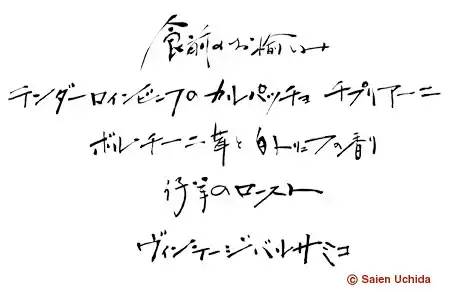 食前のお愉しみ
テンダーロインビーフのカルパッチョ チプリアーニ
ポルチーニ茸と白トリュフの香り
仔羊のロースト
ヴィンテージバルサミコ
© Saien Uchida